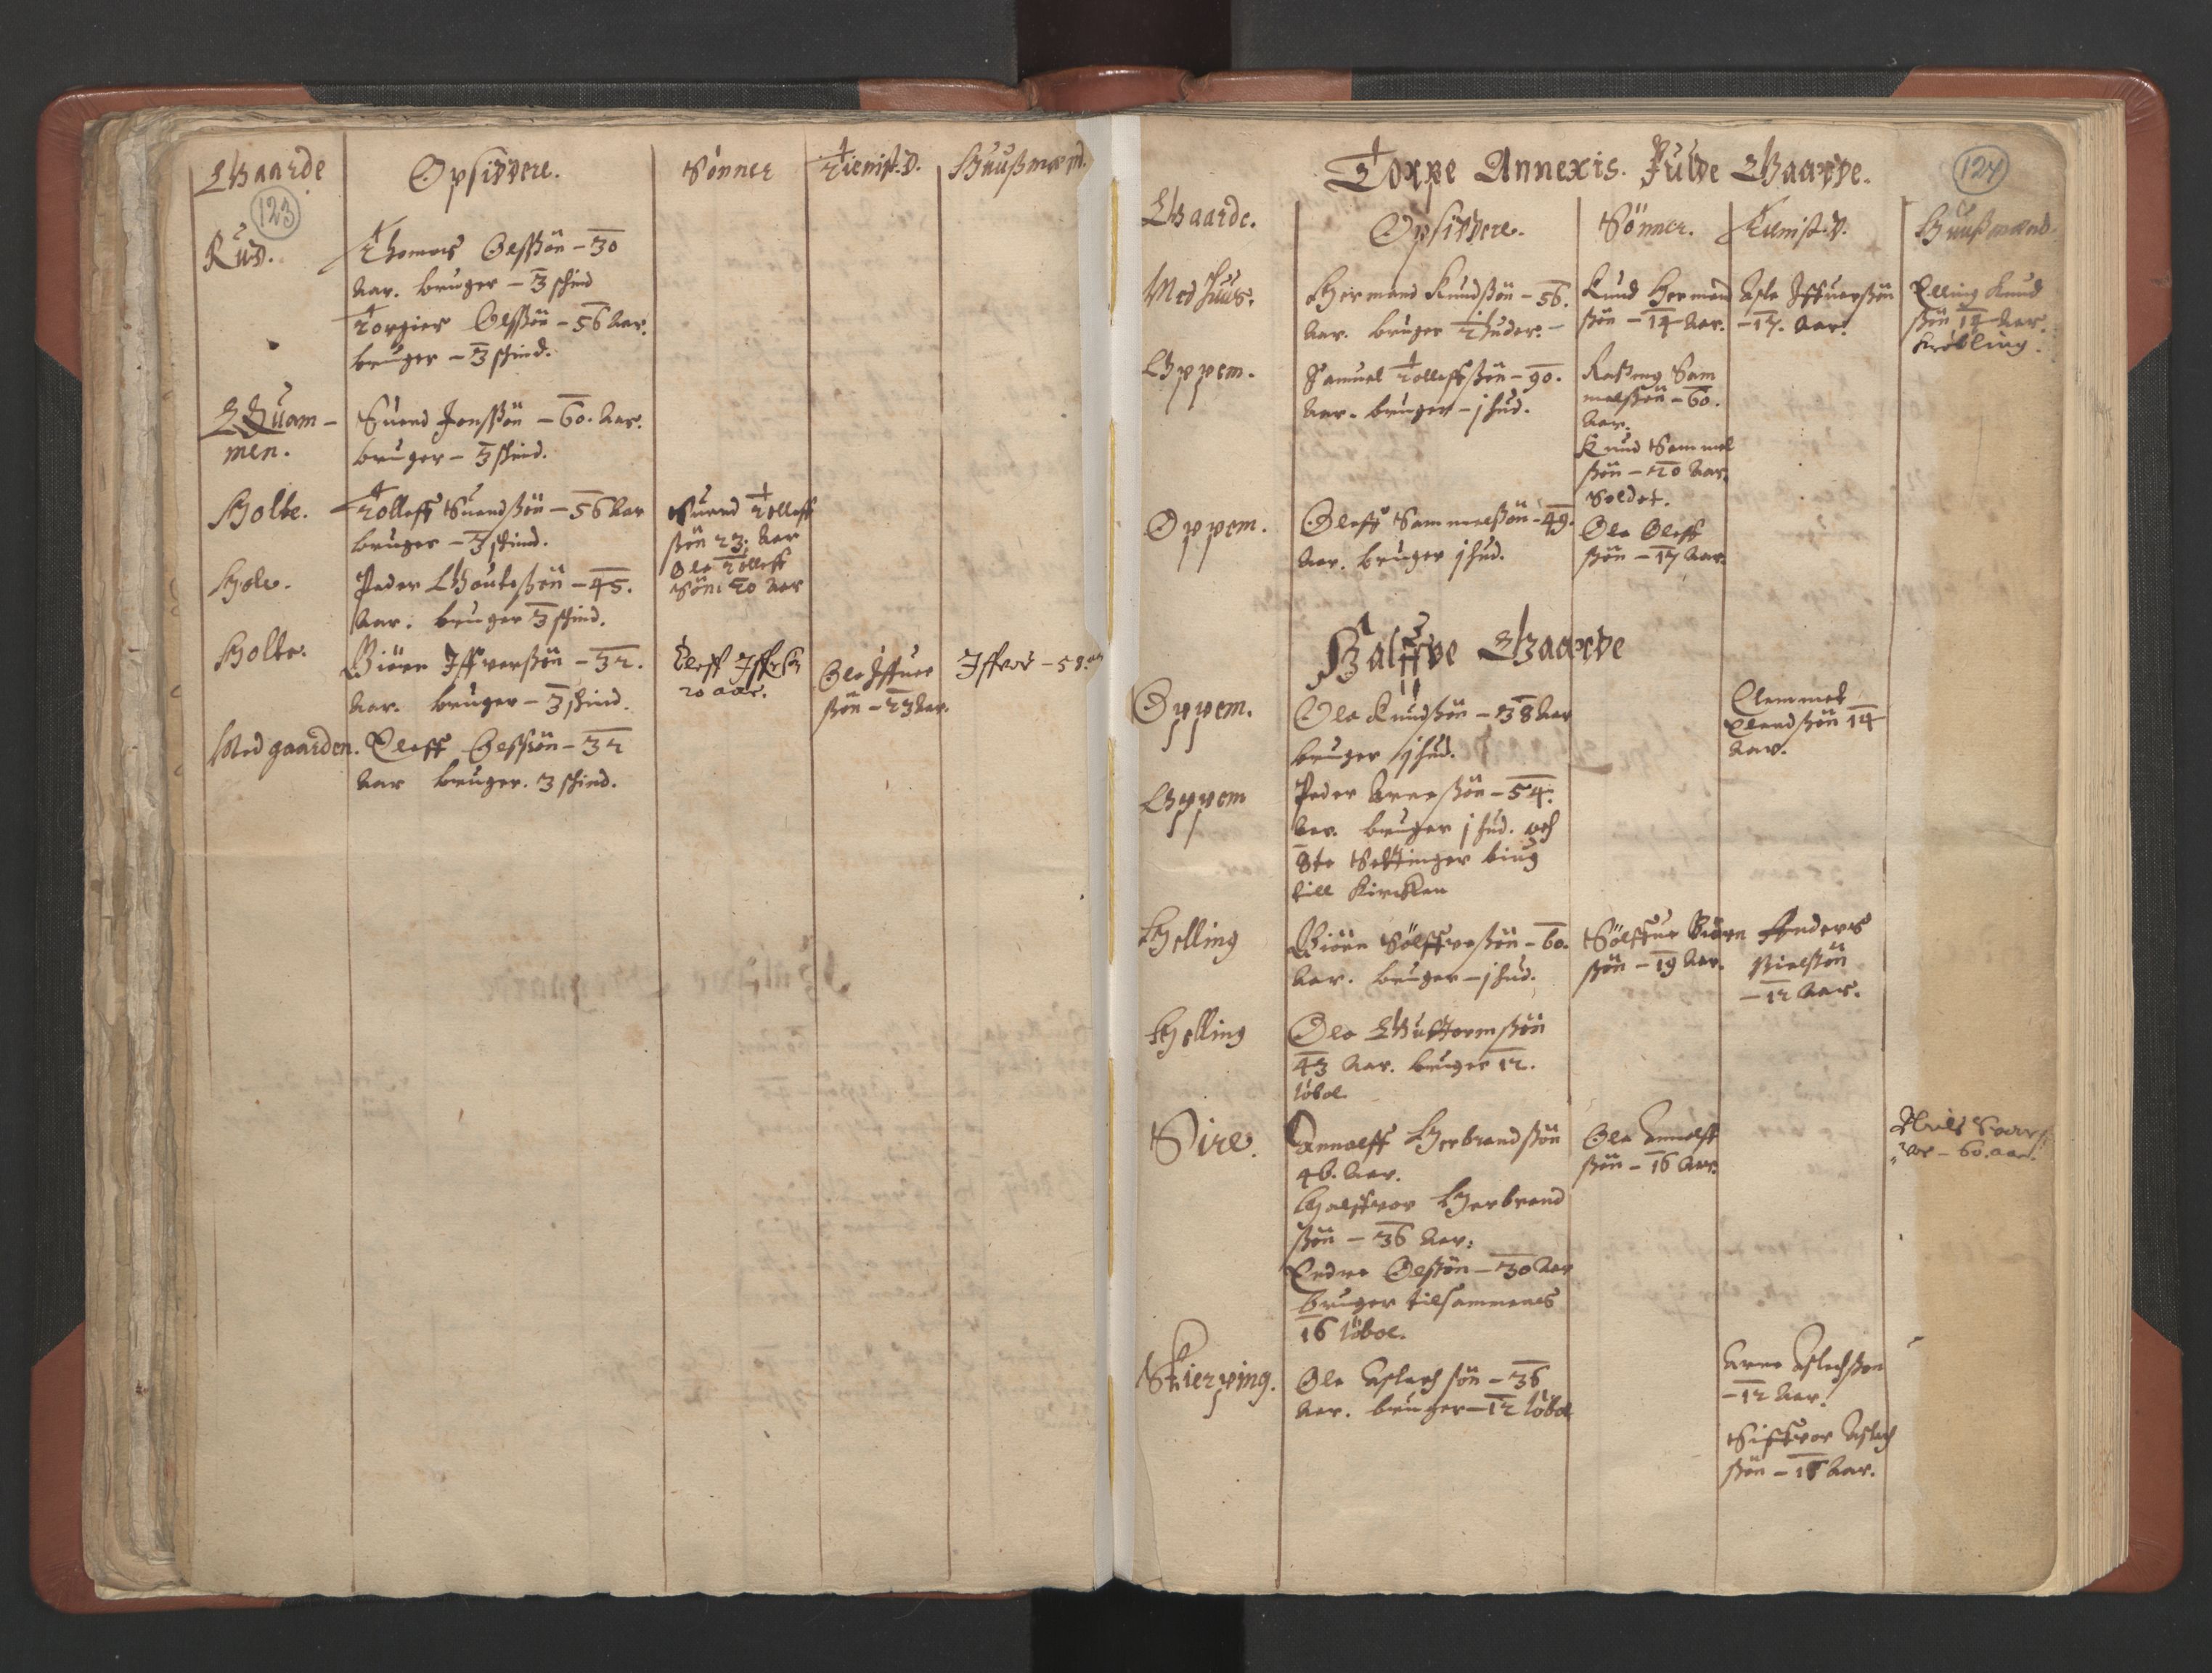 Gaarde
Opsiddere.
Sönner
Tienist.d.
Huußmænd.
123
Rud.
Thomas Olsßön – 30
Aar. bruger – 3 schind
Torgier Olsßön – 56 Aar.
bruger – 3 schind.
Quam-
men.
Suend Jonsßön – 60. Aar.
bruger – 3 schind.
Holte.
Tolleff Suendßön – 56 Aar
bruger – 3 schind.
Suend Tolleff
ßön 23. Aar
Ole Tolleff
Sön: 20 Aar
Hole.
Peder Gouteßön – 45.
Aar. bruger 3 schind.
Holte.
Biörn Iffuerßön – 32.
Aar. bruger – 3 schind.
20 aar.
Ole Iffuer
ßön – 23 Aar.
Iffver – 58.
Medgaarden.
Eleff Olsßön – 32
Aar bruger. 3 schind.
124
Torpe Annexis. Fulde Gaarde.
Gaarde.
Opsiddere.
Sönner.
Tienist.d.
Huußmænd.
Medhuus.
Hermand Knudßön – 56.
Aar. bruger 2 huder. –
Knud Hermand
ßön – 14 Aar.
Asle Iffuerßön
– 17. Aar.
Elling Knud
ßön 18 Aar.
Kröbling.
Oppem.
Samuel Tolleffsßön – 90.
Aar. bruger – j hud.
Raßmus Sam
melßön – 60.
Aar.
Knud Sammel
ßön – 20 Aar.
Soldat.
Oppem.
Oleff Sammelßön – 49.
Aar. bruger j hud.
Ole Oleff
ßön – 17 Aar.
Halffve Gaarde
Oppem.
Ole Knudßön – 38 Aar
bruger j hud.
Clemmet
Elendßön 14
Aar.
Oppem
Peder Arneßön – 54.
Aar. bruger j hud. och
8te Settinger biug
till Kircken
Helling
Biörn Sölffveßön – 60.
Aar. bruger – j hud.
Sölffue Biörn
ßön – 19 Aar.
Anders
Nielsßön
– 12 Aar.
Helling
Ole Guttormßön
43 Aar. bruger 12.
löbol.
Sire.
Annolff Herbrandßön
46. Aar.
Halffvor Herbrand
ßön – 36 Aar.
Endre Olsßön – 30 Aar
bruger tilsammens
16 löbol.
Ole Annolff
ßön – 16 Aar.
– 60. aar.
Skierping.
Ole Aslachsön – 36
Aar. bruger – 12 löbol
Arne Aslachßön
– 12 Aar.
Siffvor Aslach
ßön – 18 Aar.